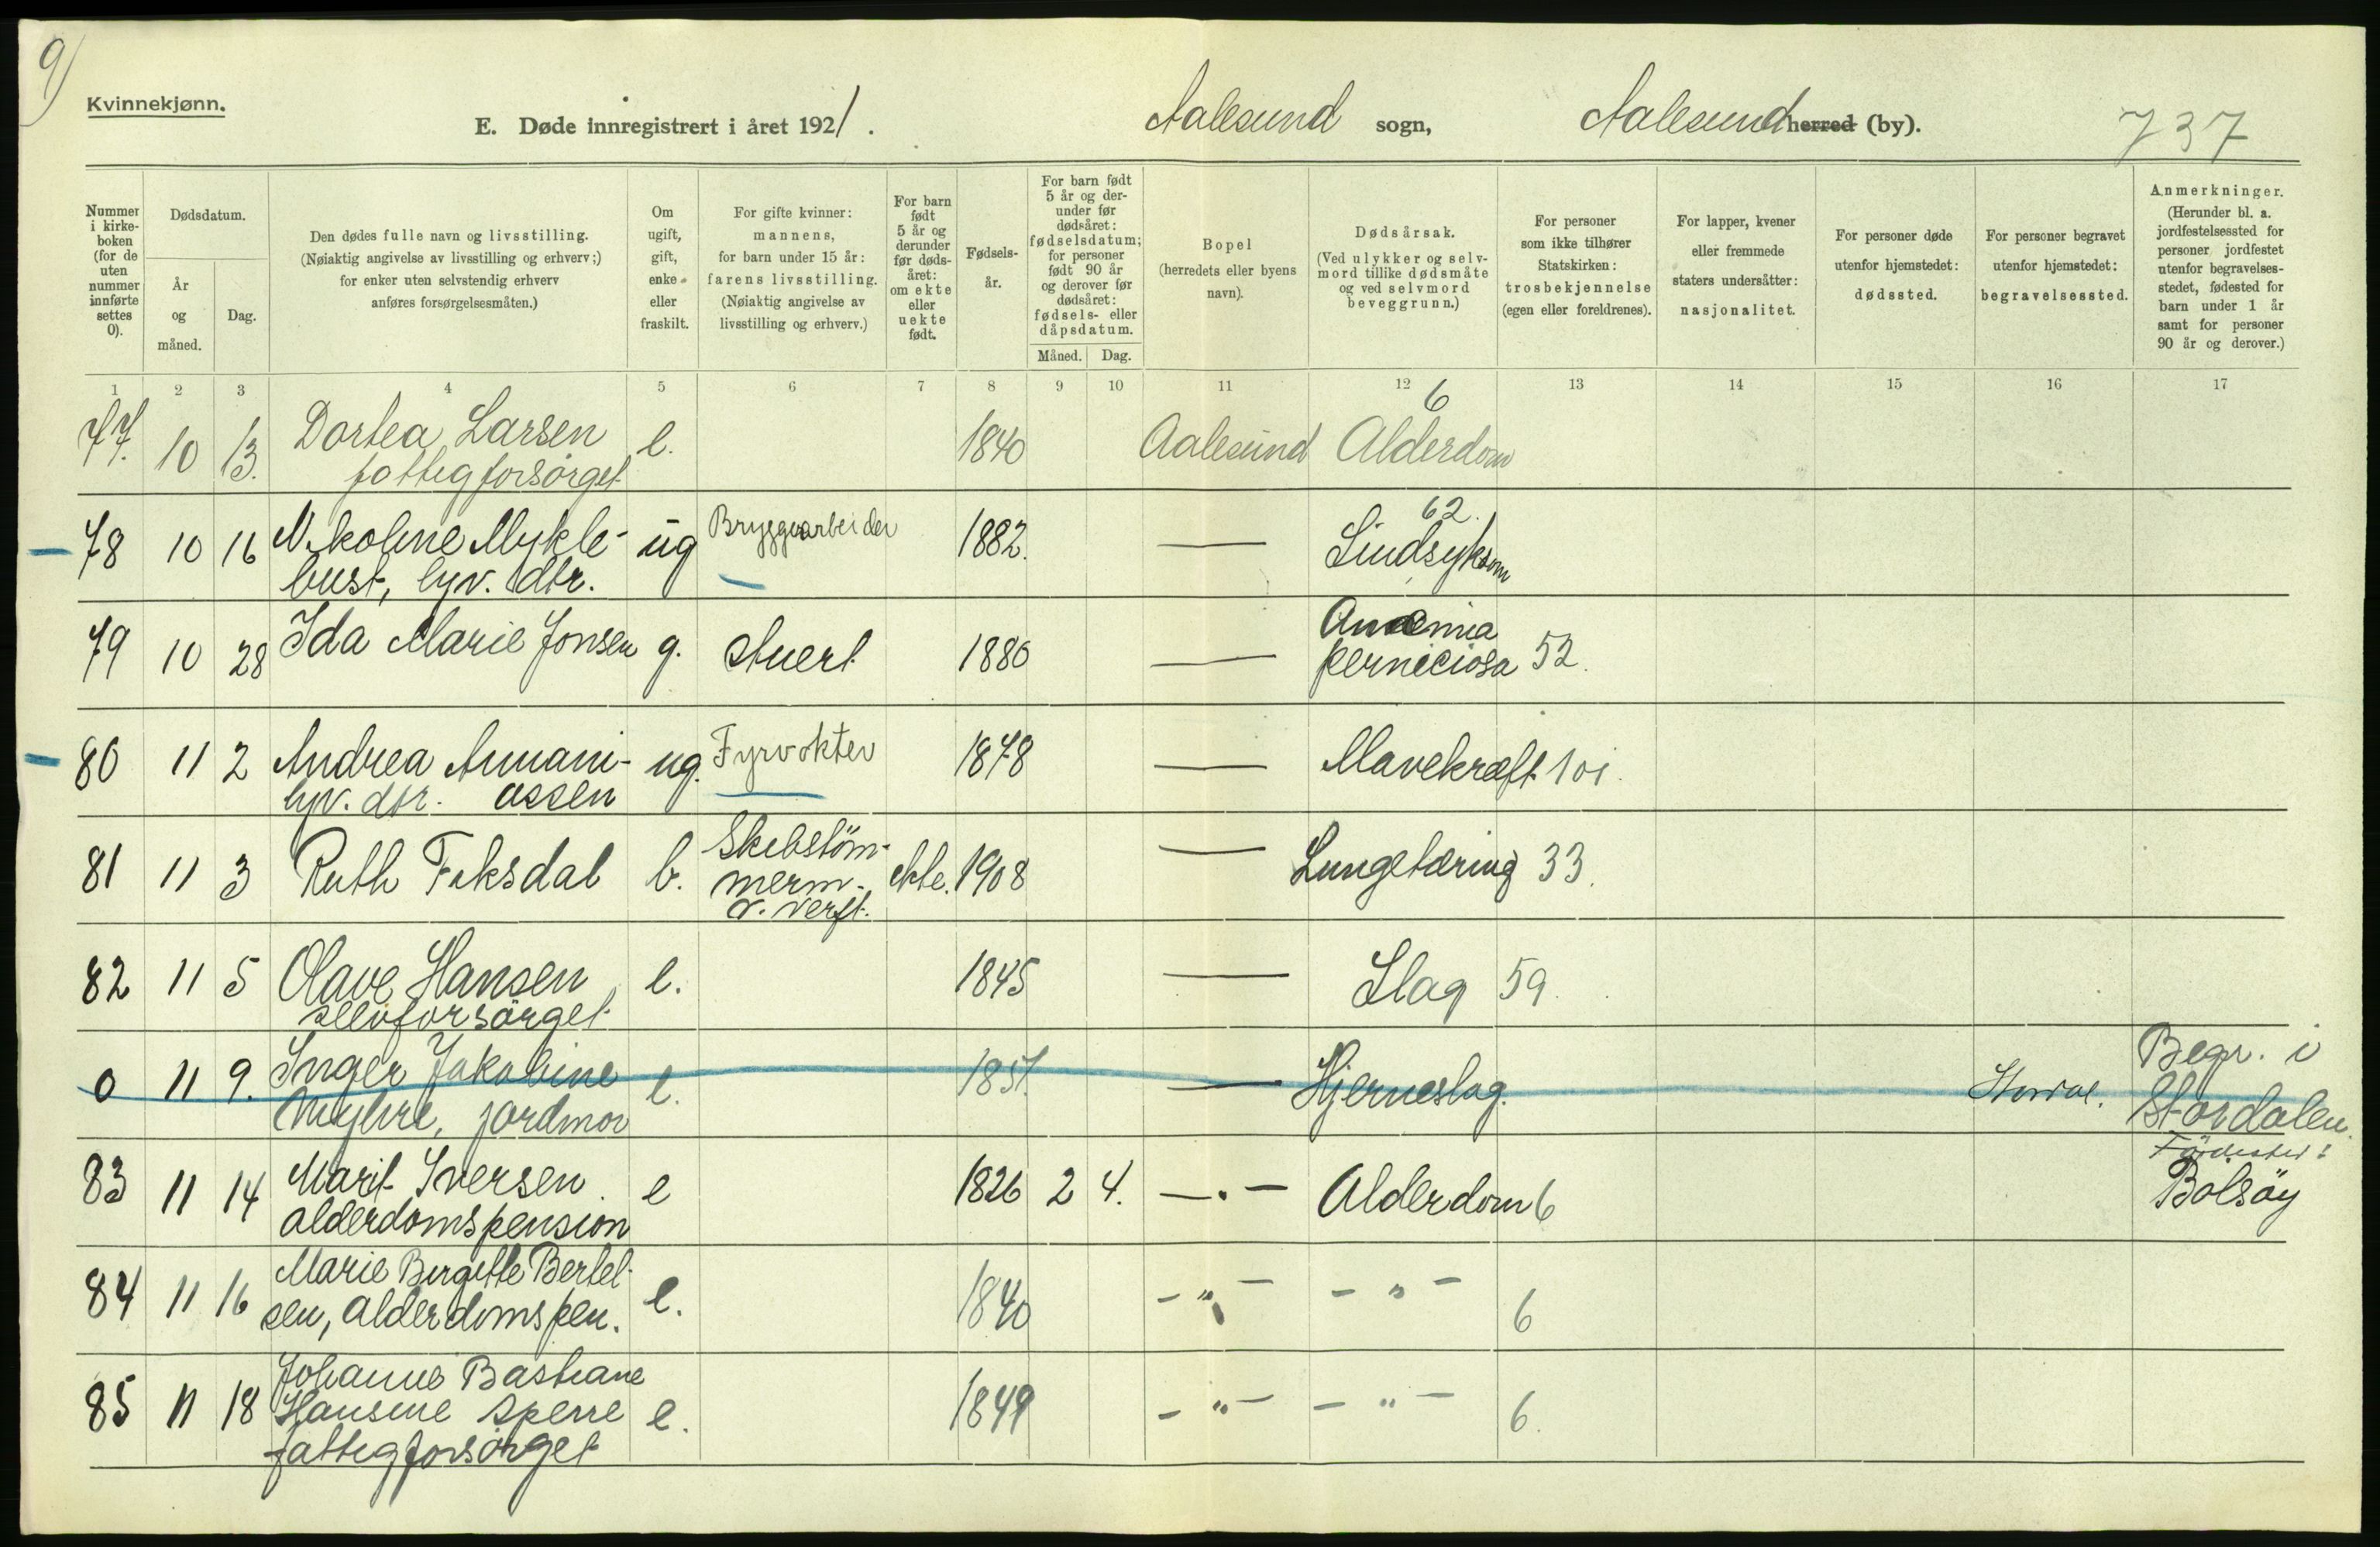 9)
Kvinnekjønn.
E. Døde innregistrert i året 1921.
Aalesund sogn,
Aalesund herred (by).
737
Nummer i kirkeboken (for de uten nummer innførte settes 0).
Dødsdatum.
År og måned.
Dag.
Den dødes fulle navn og livsstilling.
(Nøiaktig angivelse av livsstilling og erhverv;)
for enker uten selvstendig erhverv
anføres forsørgelsesmåten.)
Om ugift, gift, enke eller fraskilt.
For gifte kvinner: mannens, for barn under 15 år: farens livsstilling. (Nøiaktig angivelse av livsstilling og erhverv.)
For barn født 5 år og derunder før dødsåret: om ekte eller uekte født.
Fødselsår.
For barn født 5 år og derunder før dødsåret: fødselsdatum; for personer født 90 år og derover før dødsåret: fødsels- eller dåpsdatum.
Måned. Dag.
Bopel (herredets eller byens navn).
Dødsårsak. (Ved ulykker og selvmord tillike dødsmåte og ved selvmord beveggrunn.)
For personer som ikke tilhører Statskirken: trosbekjennelse (egen eller foreldrenes).
For lapper, kvener eller fremmede staters undersåtter: nasjonalitet.
For personer døde utenfor hjemstedet: dødssted.
For personer begravet utenfor hjemstedet: begravelsessted.
Anmerkninger. (Herunder bl. a. jordfestelsessted for personer jordfestet utenfor begravelsesstedet, fødested for barn under 1 år samt for personer 90 år og derover.)
1 2 3 4 5 6 7 8 9 10 11 12 13 14 15 16 17
77. 10 13. Dortea Larsen e. 1840 Aalesund Alderdom 6
fattigforsörget
78 10 16 Nikoline Mykle- ug Bryggearbeider 1882. — Sindsykdom 62.
bust, lyv. dtr.
79 10 28 Ida Marie Jonsen g. Stuert 1880 — Anæmia
perniciosa 52.
80 11 2 Andrea Annani- ug. Fyrvokter 1878 — Mavekræft 101.
lyv. dtr. assen
81 11 3 Ruth Fiksdal b. Skibstöm- ekte. 1908 — Lungetæring 33.
merm.
v. verft.
82 11 5 Olave Hansen e. 1845 — Slag 59.
selvforsörget
0 11 9. Inger Jakobine e. 1851. — Hjerneslag. Stordal. Begr. i
Myhre, jordmor Stordalen.
83 11 14 Marit Iversen e 1826 2 4. —.— Alderdom 6 Födested:
alderdomspension Bolsöy
84 11 16 Marie Birgitte Bertel- e. 1840 – " – – " – 6
sen, alderdomspen.
85 11 18 Johanne Bastiane e. 1849 – " – – " – 6.
Hansine Sperre
fattigforsörget